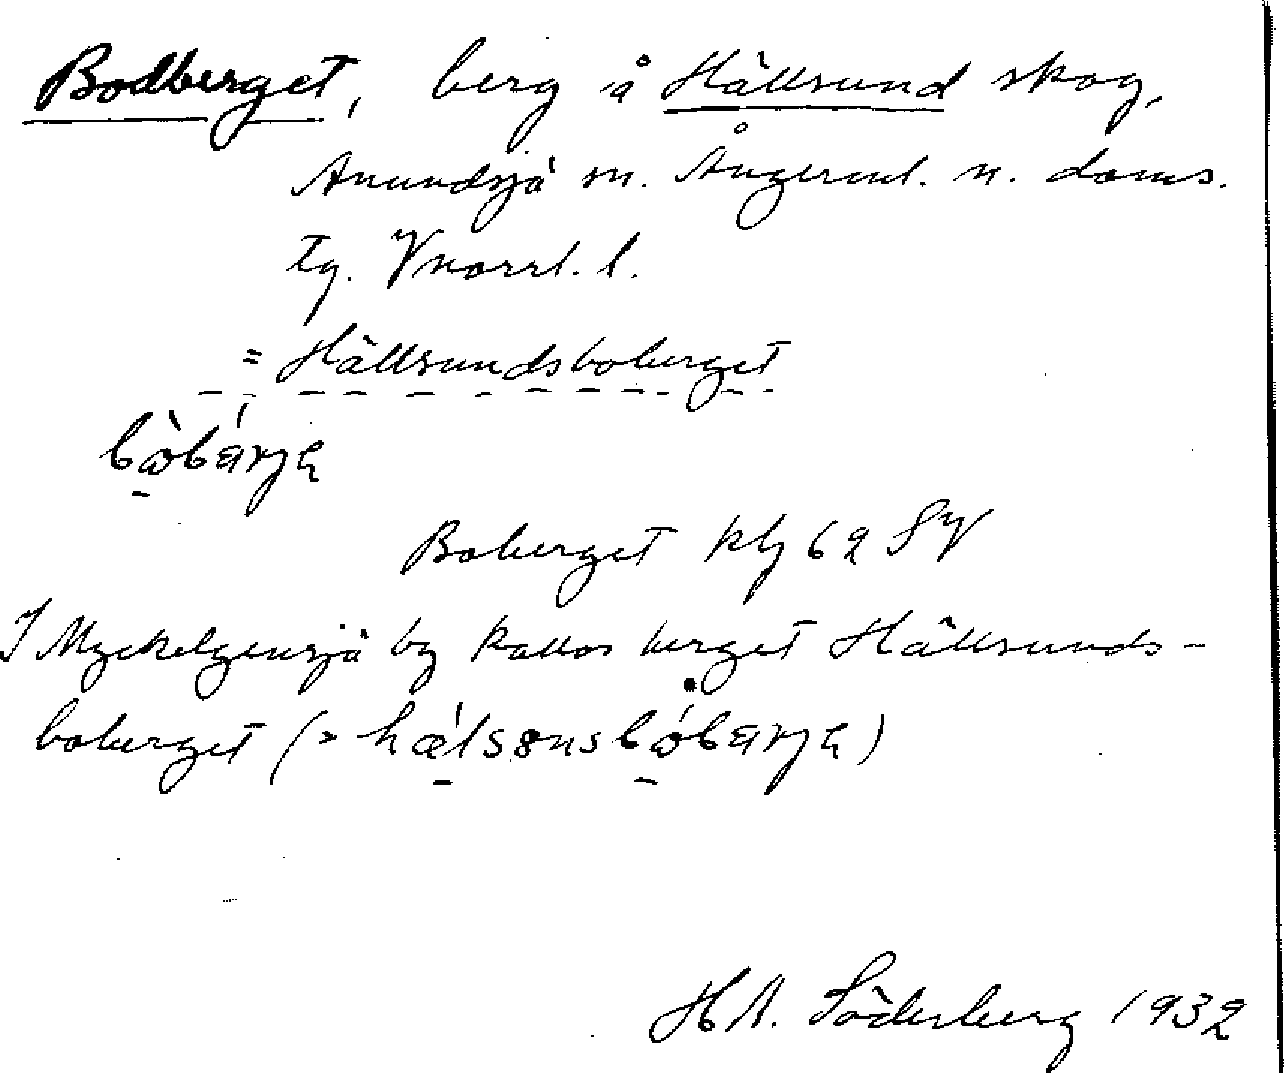 Bodberget, berg å Hällsund skog,
Anundsjö sn. Ångerml. n. doms.
tg. Vnorrl. l.
= Hällsundsboberget
Boberget kbg 62 SV
I Myckelgensjö by kallas berget Hällsunds-
boberget (=
H A. Söderberg 1932